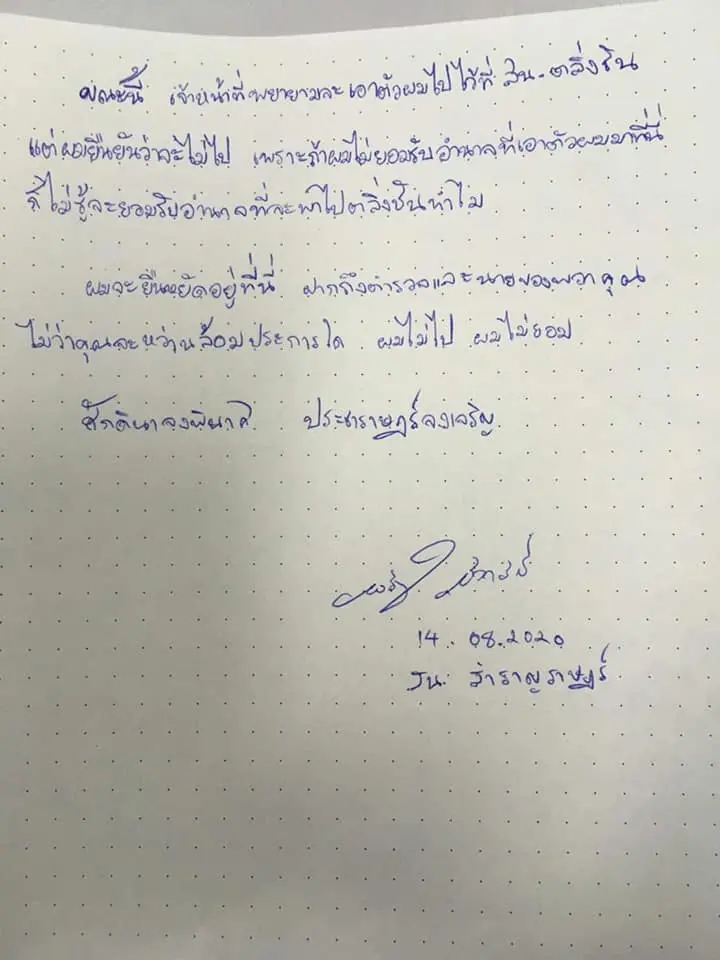 ขณะนี้ เจ้าหน้าที่พยายามจะเอาตัวผมไปไว้ที่ สน.ตลิ่งชัน
แต่ผมยืนยันว่าจะไม่ไป เพราะถ้าผมไม่ยอมรับอำนาจที่เอาตัวผมมาที่นี่
ก็ไม่รู้จะยอมรับอำนาจที่จะพาไปตลิ่งชันทำไม
ผมจะยืนหยัดอยู่ที่นี่ ฝากถึงตำรวจและนายของพวกคุณ
ไม่ว่าคุณจะหว่านล้อมประการใด ผมไม่ไป ผมไม่ยอม
ศักดินาจงพินาศ ประชาราษฎร์จงเจริญ
14. 08.2020
สน. สำราญราษฎร์